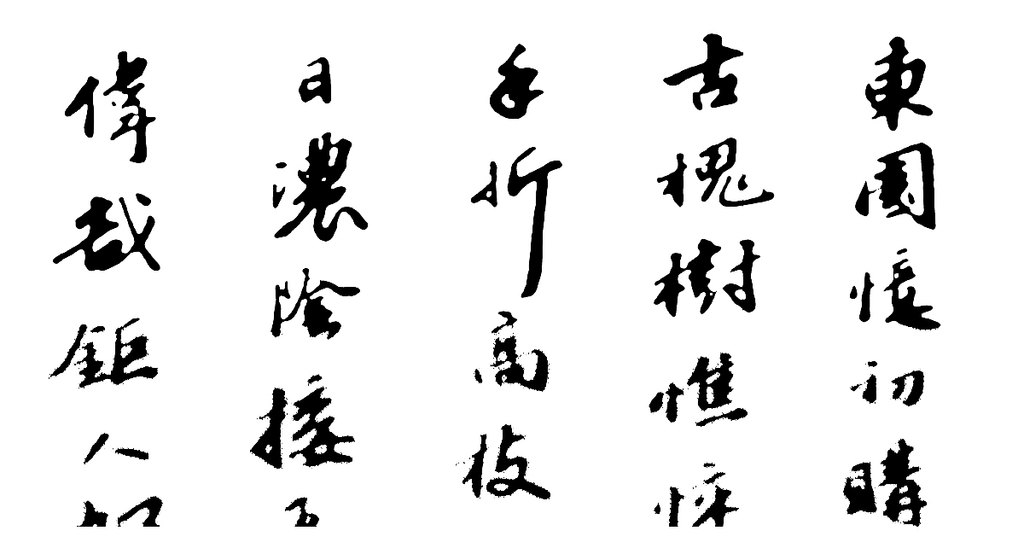 東園憶初購
古槐樹憔悴
手折高枝
日濃陰接
偉哉鉅人